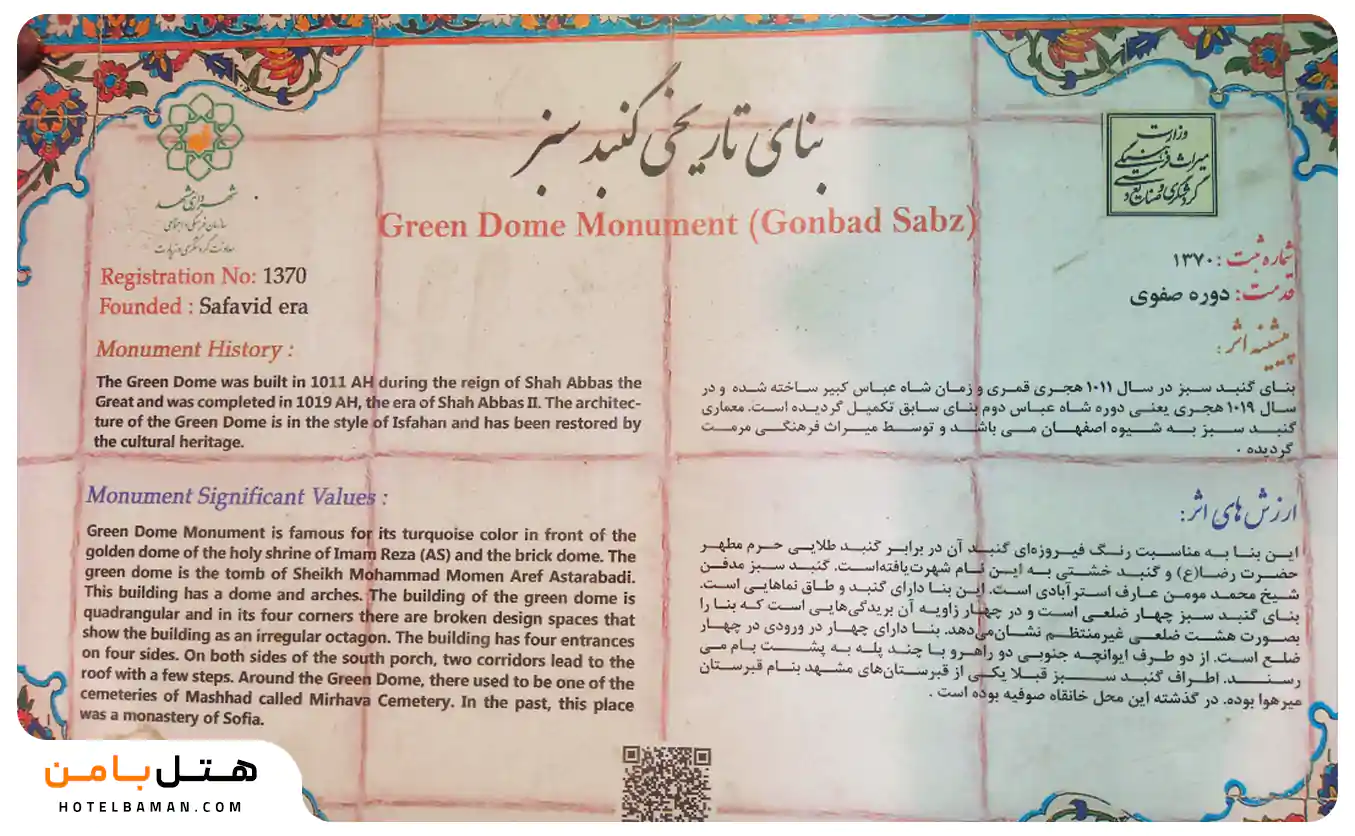 بنای تاریخی گنبد سبز
Green Dome Monument (Gonbad Sabz)
شهرداری مشهد
سازمان فرهنگی و اجتماعی
معاونت گردشگری و زیارت
Registration No: 1370
Founded : Safavid era
Monument History :
The Green Dome was built in 1011 AH during the reign of Shah Abbas the
Great and was completed in 1019 AH, the era of Shah Abbas II. The architec-
ture of the Green Dome is in the style of Isfahan and has been restored by
the cultural heritage.
Monument Significant Values :
Green Dome Monument is famous for its turquoise color in front of the
golden dome of the holy shrine of Imam Reza (AS) and the brick dome. The
green dome is the tomb of Sheikh Mohammad Momen Aref Astarabadi.
This building has a dome and arches. The building of the green dome is
quadrangular and in its four corners there are broken design spaces that
show the building as an irregular octagon. The building has four entrances
on four sides. On both sides of the south porch, two corridors lead to the
roof with a few steps. Around the Green Dome, there used to be one of the
cemeteries of Mashhad called Mirhava Cemetery. In the past, this place
was a monastery of Sofia.
وزارت
میراث فرهنگی
گردشگری و صنایع دستی
شماره ثبت : ۱۳۷۰
قدمت: دوره صفوی
پیشینه اثر :
بنای گنبد سبز در سال ۱۰۱۱ هجری قمری و زمان شاه عباس کبیر ساخته شده و در
سال ۱۰۱۹ هجری یعنی دوره شاه عباس دوم بنای سابق تکمیل گردیده است. معماری
گنبد سبز به شیوه اصفهان می باشد و توسط میراث فرهنگی مرمت
گردیده .
ارزش های اثر:
این بنا به مناسبت رنگ فیروزه‌ای گنبد آن در برابر گنبد طلایی حرم مطهر
حضرت رضا(ع) و گنبد خشتی به این نام شهرت‌یافته‌است. گنبد سبز مدفن
شیخ محمد مومن عارف استرآبادی است. این بنا دارای گنبد و طاق نماهایی است.
بنای گنبد سبز چهار ضلعی است و در چهار زاویه آن بریدگی‌هایی است که بنا را
بصورت هشت ضلعی غیرمنتظم نشان‌می‌دهد. بنا دارای چهار در ورودی در چهار
ضلع است. از دو طرف ایوانچه جنوبی دو راهرو با چند پله به پشت بام می
رسند. اطراف گنبد سبز قبلا یکی از قبرستان‌های مشهد بنام قبرستان
میرهوا بوده. در گذشته این محل خانقاه صوفیه بوده است .
هتل بامن
HOTELBAMAN.COM